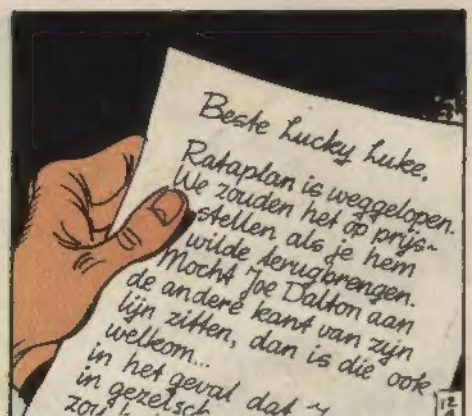 Beste Lucky Luke,
Rataplan is weggelopen.
We zouden het op prijs~
stellen als je hem
wilde terugbrengen.
Mocht Joe Dalton aan
de andere kant van zijn
lijn zitten, dan is die ook
welkom...
in het geval dat
in gezelsch
12